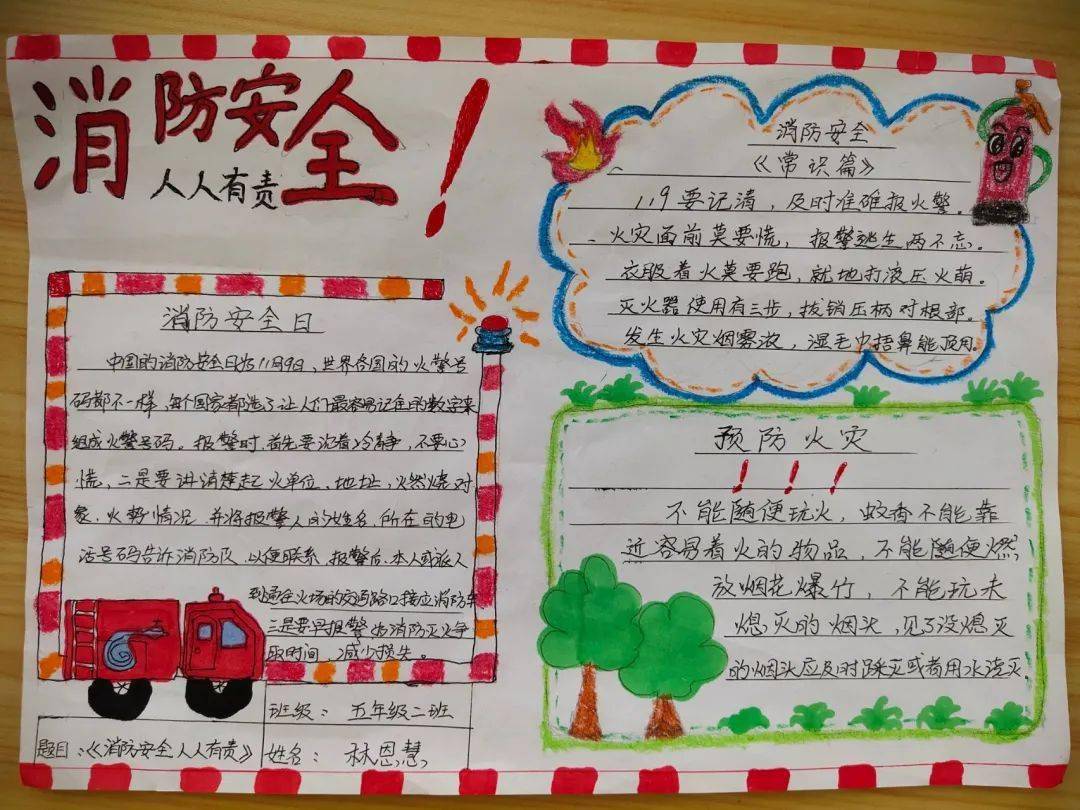 消防安全！
人人有责
消防安全日
中国的消防安全日为11月9日，世界各国的火警号
码都不一样，每个国家都选了让人们最容易记住的数字来
组成火警号码。报警时，首先要沉着冷静，不要心
慌，二是要讲清楚起火单位、地址，火然烧对
象、火势情况，并将报警人的姓名，所在的电
话号码告诉消防队，以便联系，报警后，本人或派人
到通往火场的交通路口接应消防车
三是要早报警为消防灭火争
取时间，减少损失。
班级：五年级二班
题目：《消防安全人人有责》
姓名：林恩慧
消防安全
《常识篇》
119要记清，及时准确报火警。
火灾面前莫要慌，报警逃生两不忘。
衣服着火莫要跑，就地打滚压火萌。
灭火器使用有三步，拔销压柄对根部。
发生火灾烟雾浓，湿毛巾捂鼻能顶用。
预防火灾
！！！
不能随便玩火，蚊香不能靠
近容易着火的物品，不能随便燃
放烟花爆竹，不能玩未
熄灭的烟头，见了没熄灭
的烟头应及时踩灭或者用水浇灭。